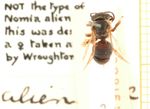 NOT the type of
Nomia alien
This was des
a ♀ taken a
by Wroughton
alien ?
2